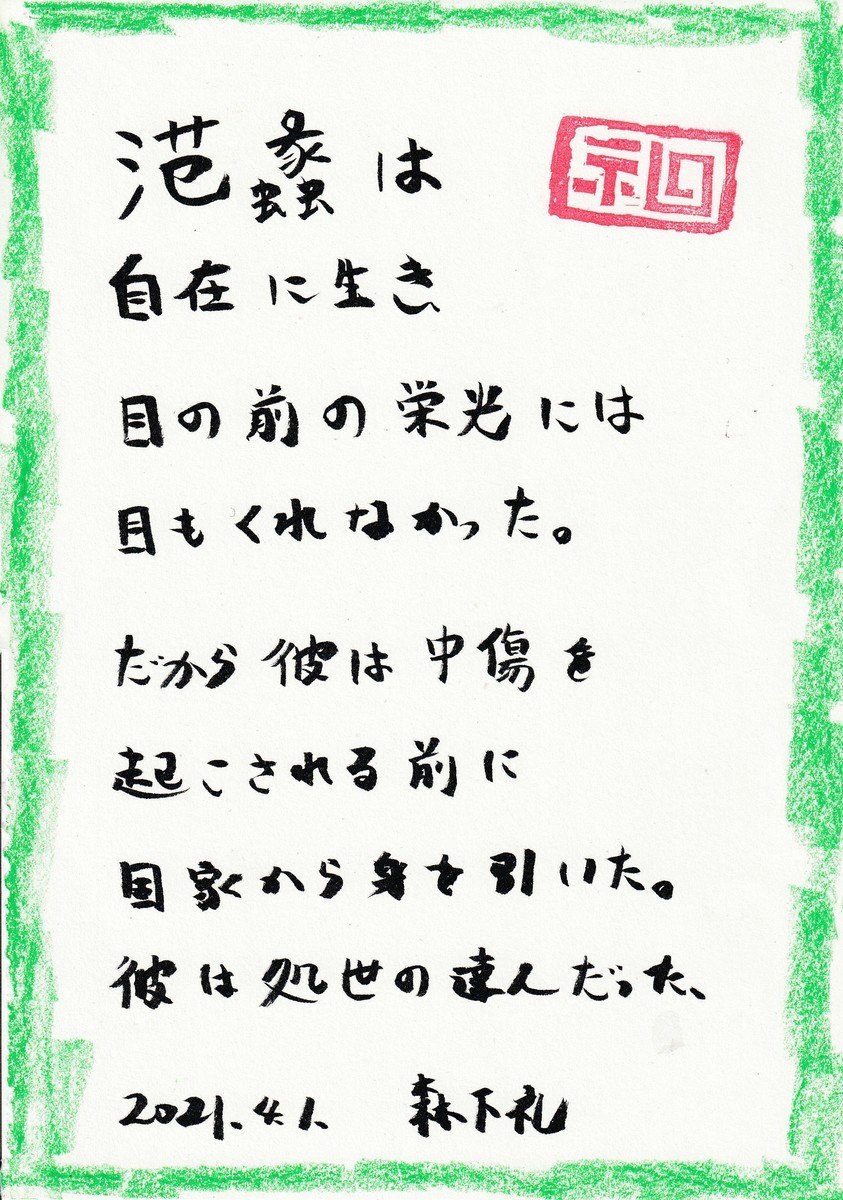 范蠡は
自在に生き
目の前の栄光には
目もくれなかった。
だから彼は中傷を
起こされる前に
国家から身を引いた。
彼は処世の達人だった、
2021.4.1. 森下礼